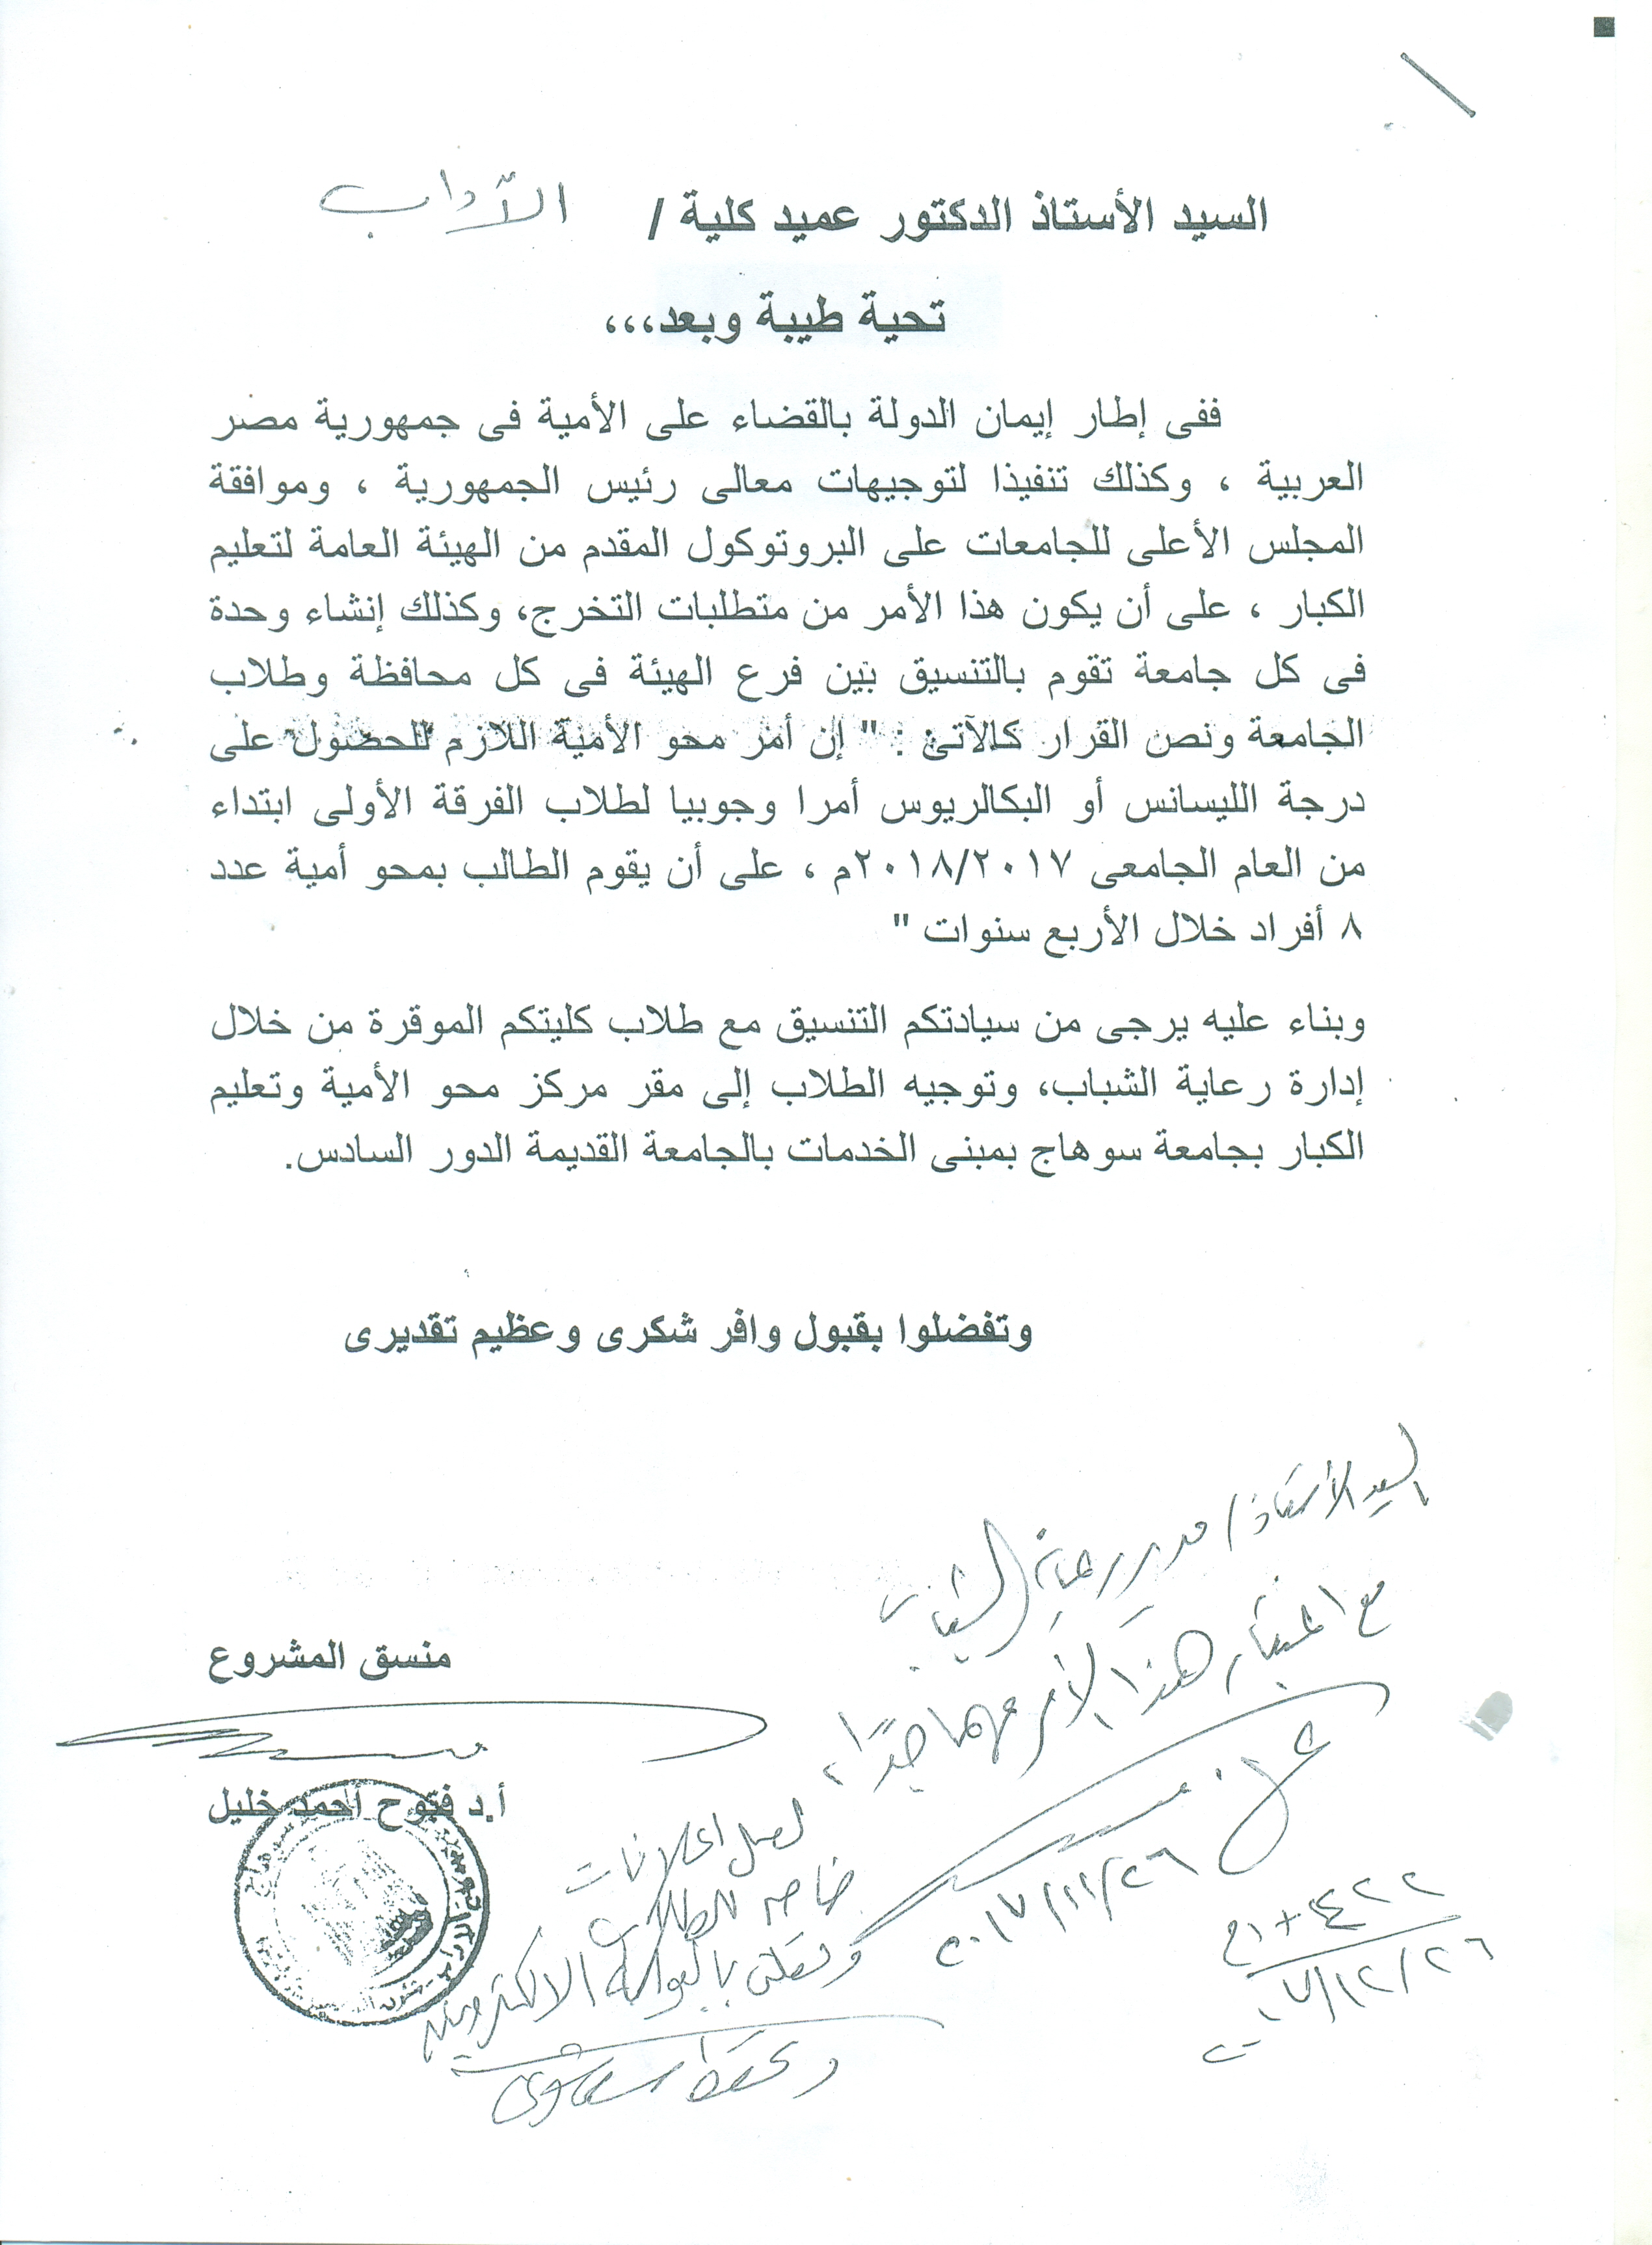 السيد الأستاذ الدكتور عميد كلية / الآداب
تحية طيبة وبعد،،،
ففى إطار إيمان الدولة بالقضاء على الأمية فى جمهورية مصر
العربية ، وكذلك تنفيذا لتوجيهات معالى رئيس الجمهورية ، وموافقة
المجلس الأعلى للجامعات على البروتوكول المقدم من الهيئة العامة لتعليم
الكبار ، على أن يكون هذا الأمر من متطلبات التخرج، وكذلك إنشاء وحدة
فى كل جامعة تقوم بالتنسيق بين فرع الهيئة فى كل محافظة وطلاب
الجامعة ونص القرار كالآتى : " إن أمر محو الأمية اللازم للحصول على
درجة الليسانس أو البكالريوس أمرا وجوبيا لطلاب الفرقة الأولى ابتداء
من العام الجامعى ٢٠١٨/٢٠١٧م ، على أن يقوم الطالب بمحو أمية عدد
٨ أفراد خلال الأربع سنوات "
وبناء عليه يرجى من سيادتكم التنسيق مع طلاب كليتكم الموقرة من خلال
إدارة رعاية الشباب، وتوجيه الطلاب إلى مقر مركز محو الأمية وتعليم
الكبار بجامعة سوهاج بمبنى الخدمات بالجامعة القديمة الدور السادس.
وتفضلوا بقبول وافر شكرى وعظيم تقديرى
السيد الأستاذ / مدير رعاية الشباب
مع اعتبار هذا الأمر مهما جدا
٢٠١٧/١١/٢٦
منسق المشروع
أ.د فتوح أحمد خليل
لعمل اعلانات
خاصه للطلاب
بالبوابة الالكترونية
٢٠١٧/١٢/٢٦